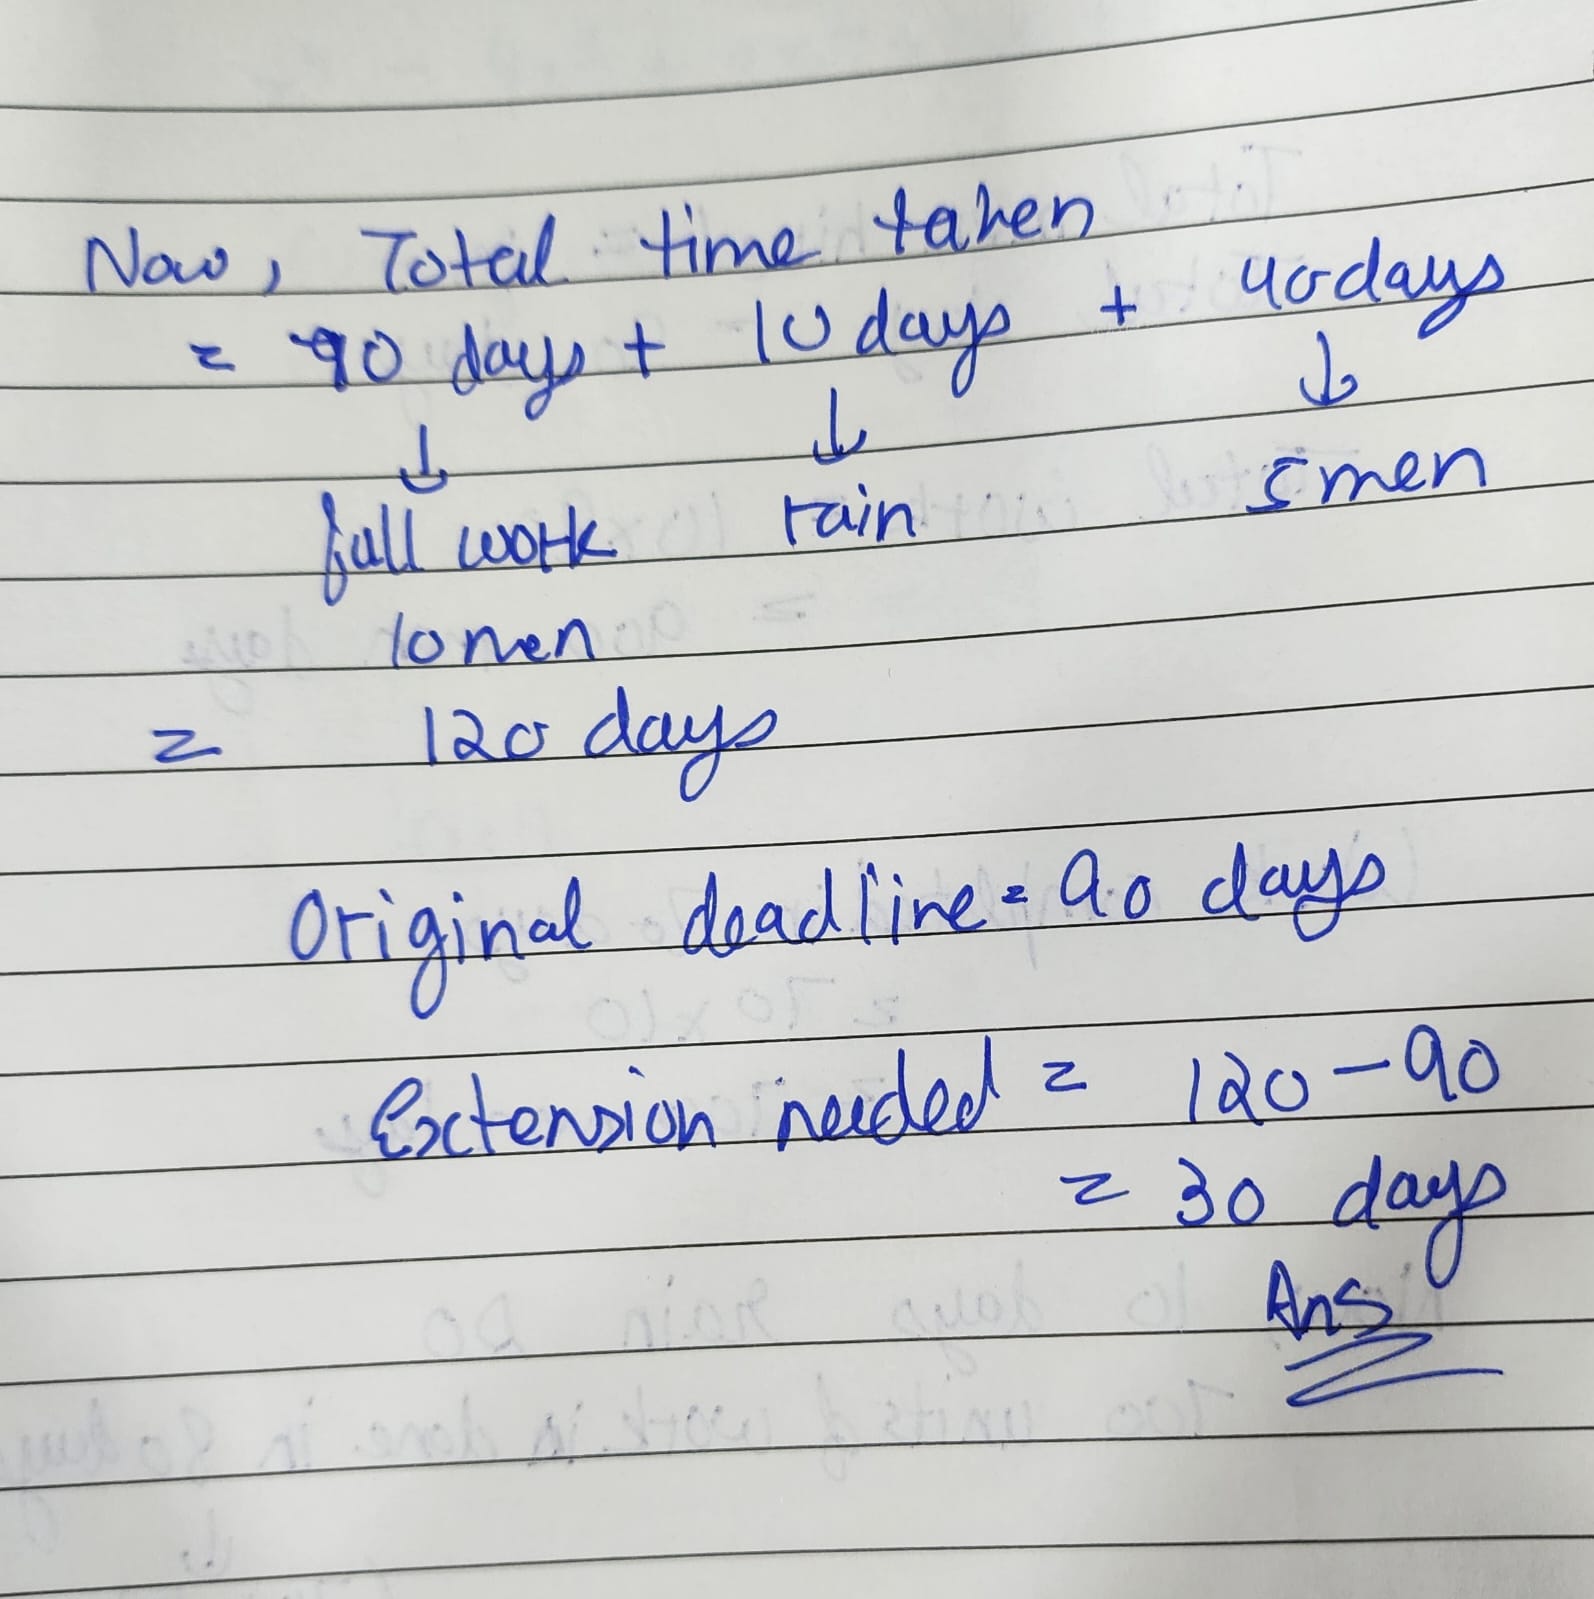 Now, Total time taken
= 70 days + 10 days + 40days
↓ ↓ ↓
full work rain 5men
10 men
= 120 days
Original deadline = 90 days
Extension needed = 120 - 90
= 30 days
Ans